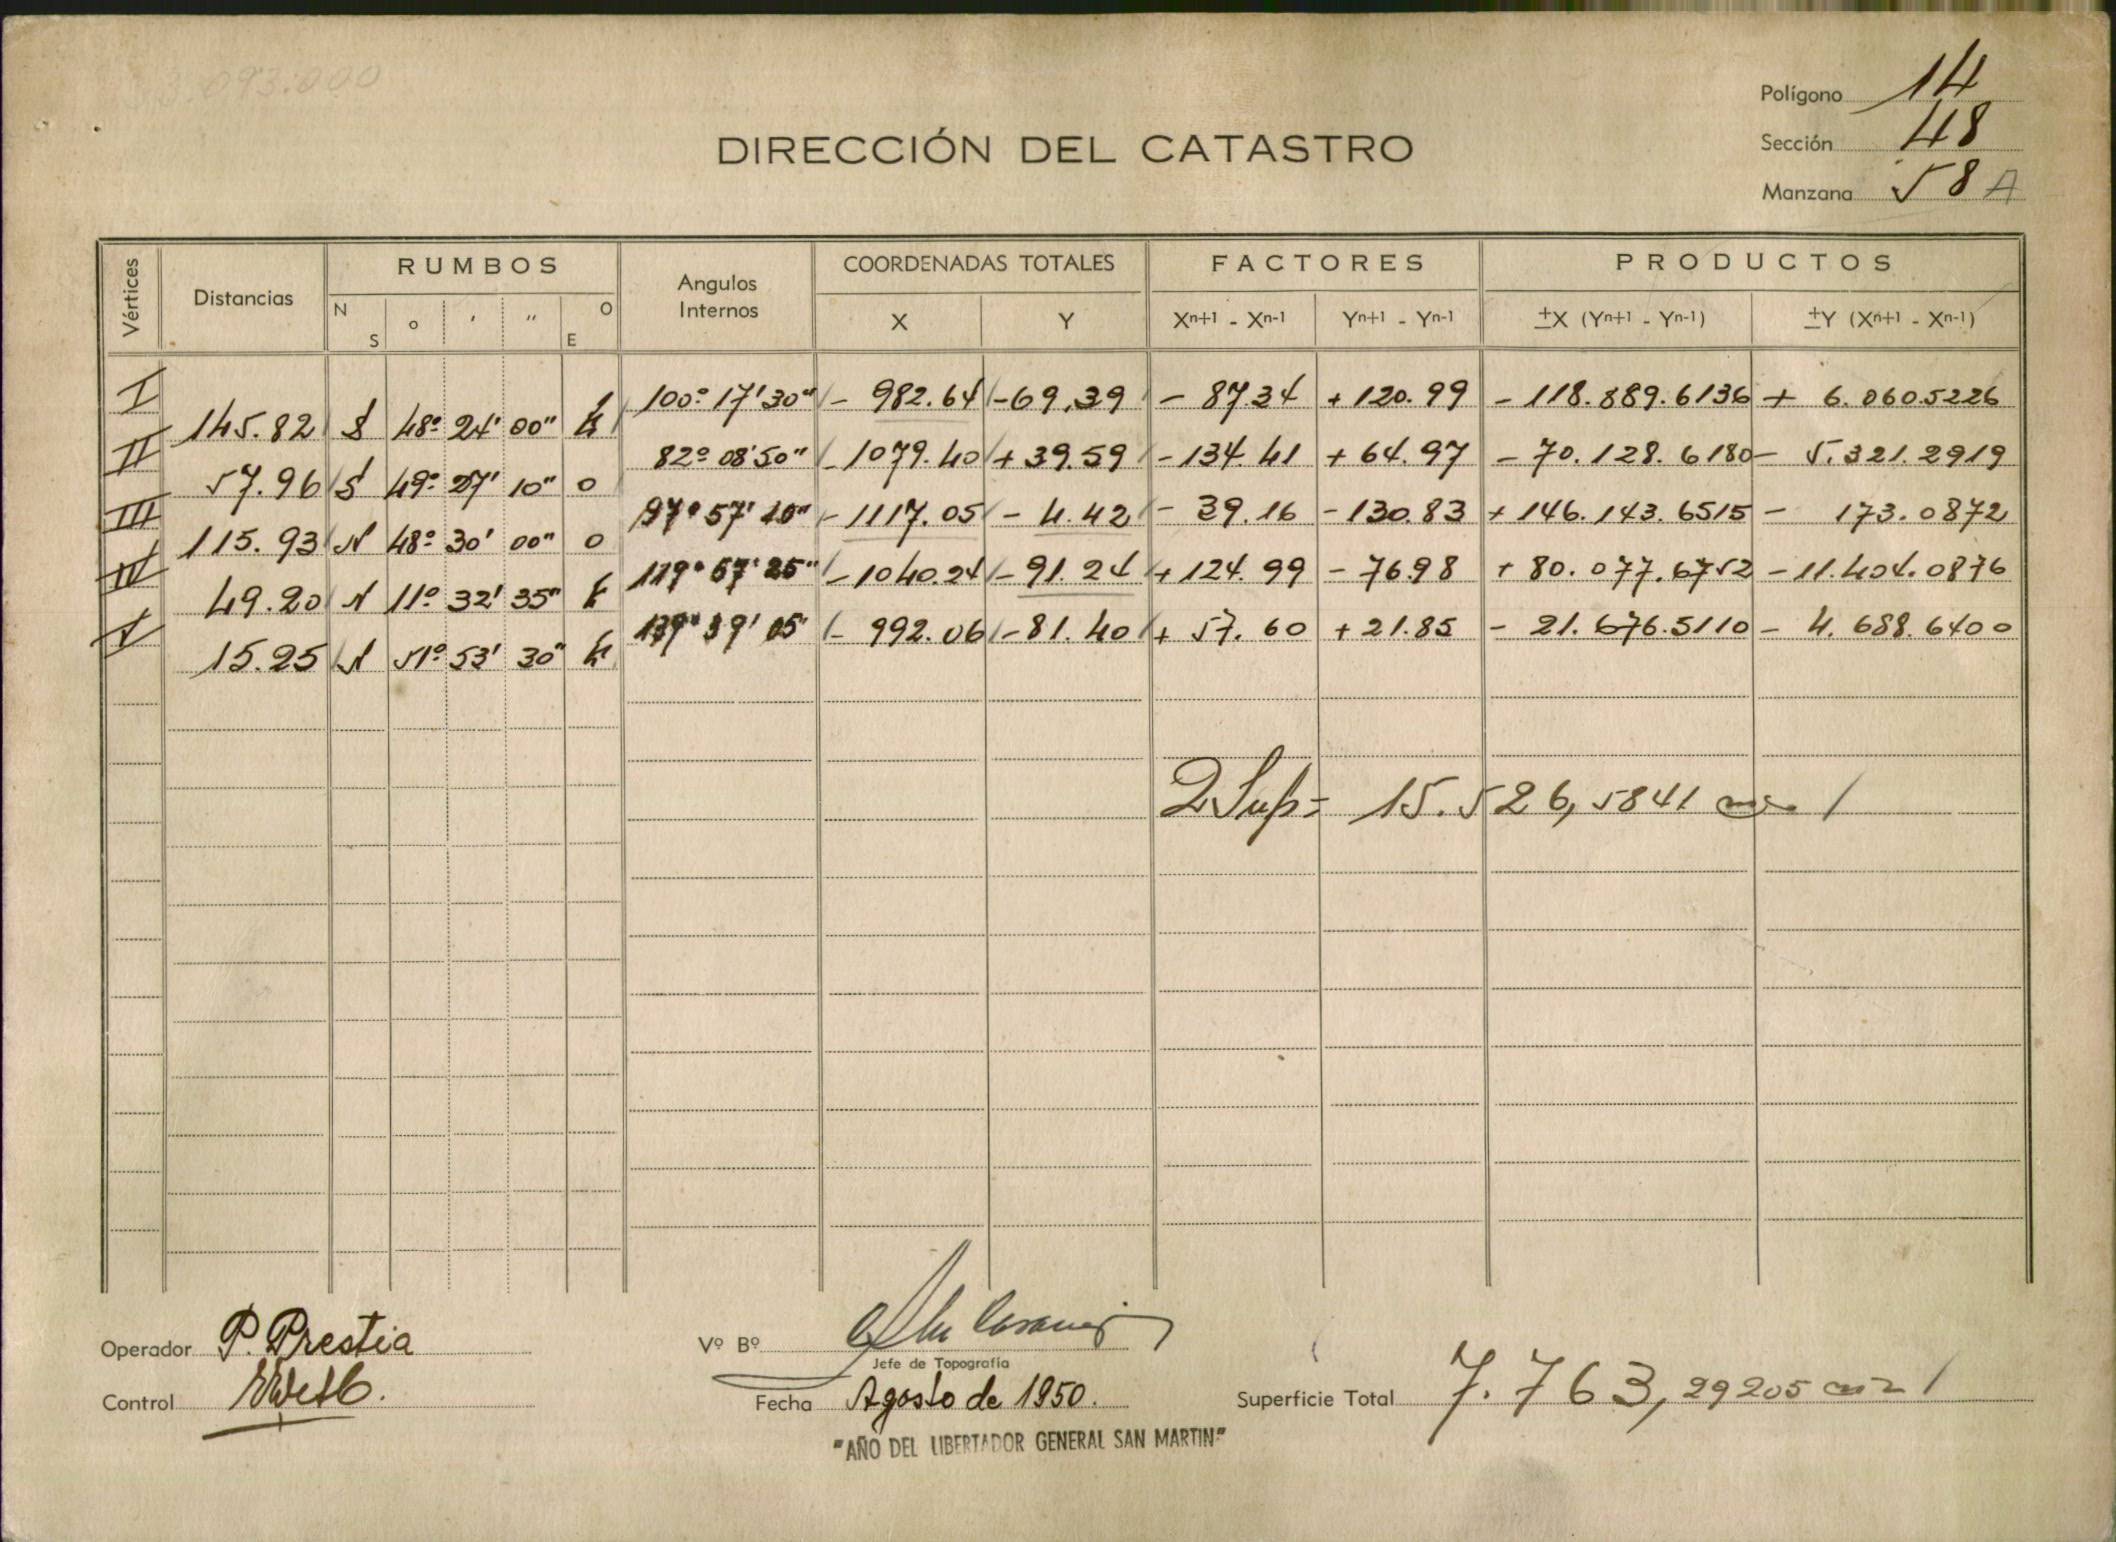 3.093.000
Polígono 14
Sección 48
Manzana 58 A
DIRECCIÓN DEL CATASTRO
Vértices Distancias RUMBOS Angulos Internos COORDENADAS TOTALES FACTORES PRODUCTOS
N S o ' '' O E X Y Xn+1 - Xn-1 Yn+1 - Yn-1 ±X (Yn+1 - Yn-1) ±Y (Xn+1 - Xn-1)
I 100º 17' 30" - 982.64 - 69.39 - 87.34 + 120.99 - 118.889.6136 + 6.060.5226
145.82 S 48º 24' 00" E
II 82º 08' 50" - 1079.40 + 39.59 - 134.41 + 64.97 - 70.128.6180 - 5.321.2919
57.96 S 49º 27' 10" O
III 97º 57' 10" - 1117.05 - 4.42 - 39.16 - 130.83 + 146.143.6515 - 173.0872
115.93 N 48º 30' 00" O
IV 119º 57' 25" - 1040.24 - 91.24 + 124.99 - 76.98 + 80.077.6752 - 11.404.0876
49.20 N 11º 32' 35" E
V 139º 39' 05" - 992.06 - 81.40 + 57.60 + 21.85 - 21.676.5110 - 4.688.6400
15.25 N 51º 53' 30" E
2 Sup = 15.526,5841 m2
Operador P. Prestia
Control
Vº Bº
Jefe de Topografía
Fecha Agosto de 1950.
Superficie Total 7.763,29205 m2
"AÑO DEL LIBERTADOR GENERAL SAN MARTIN"